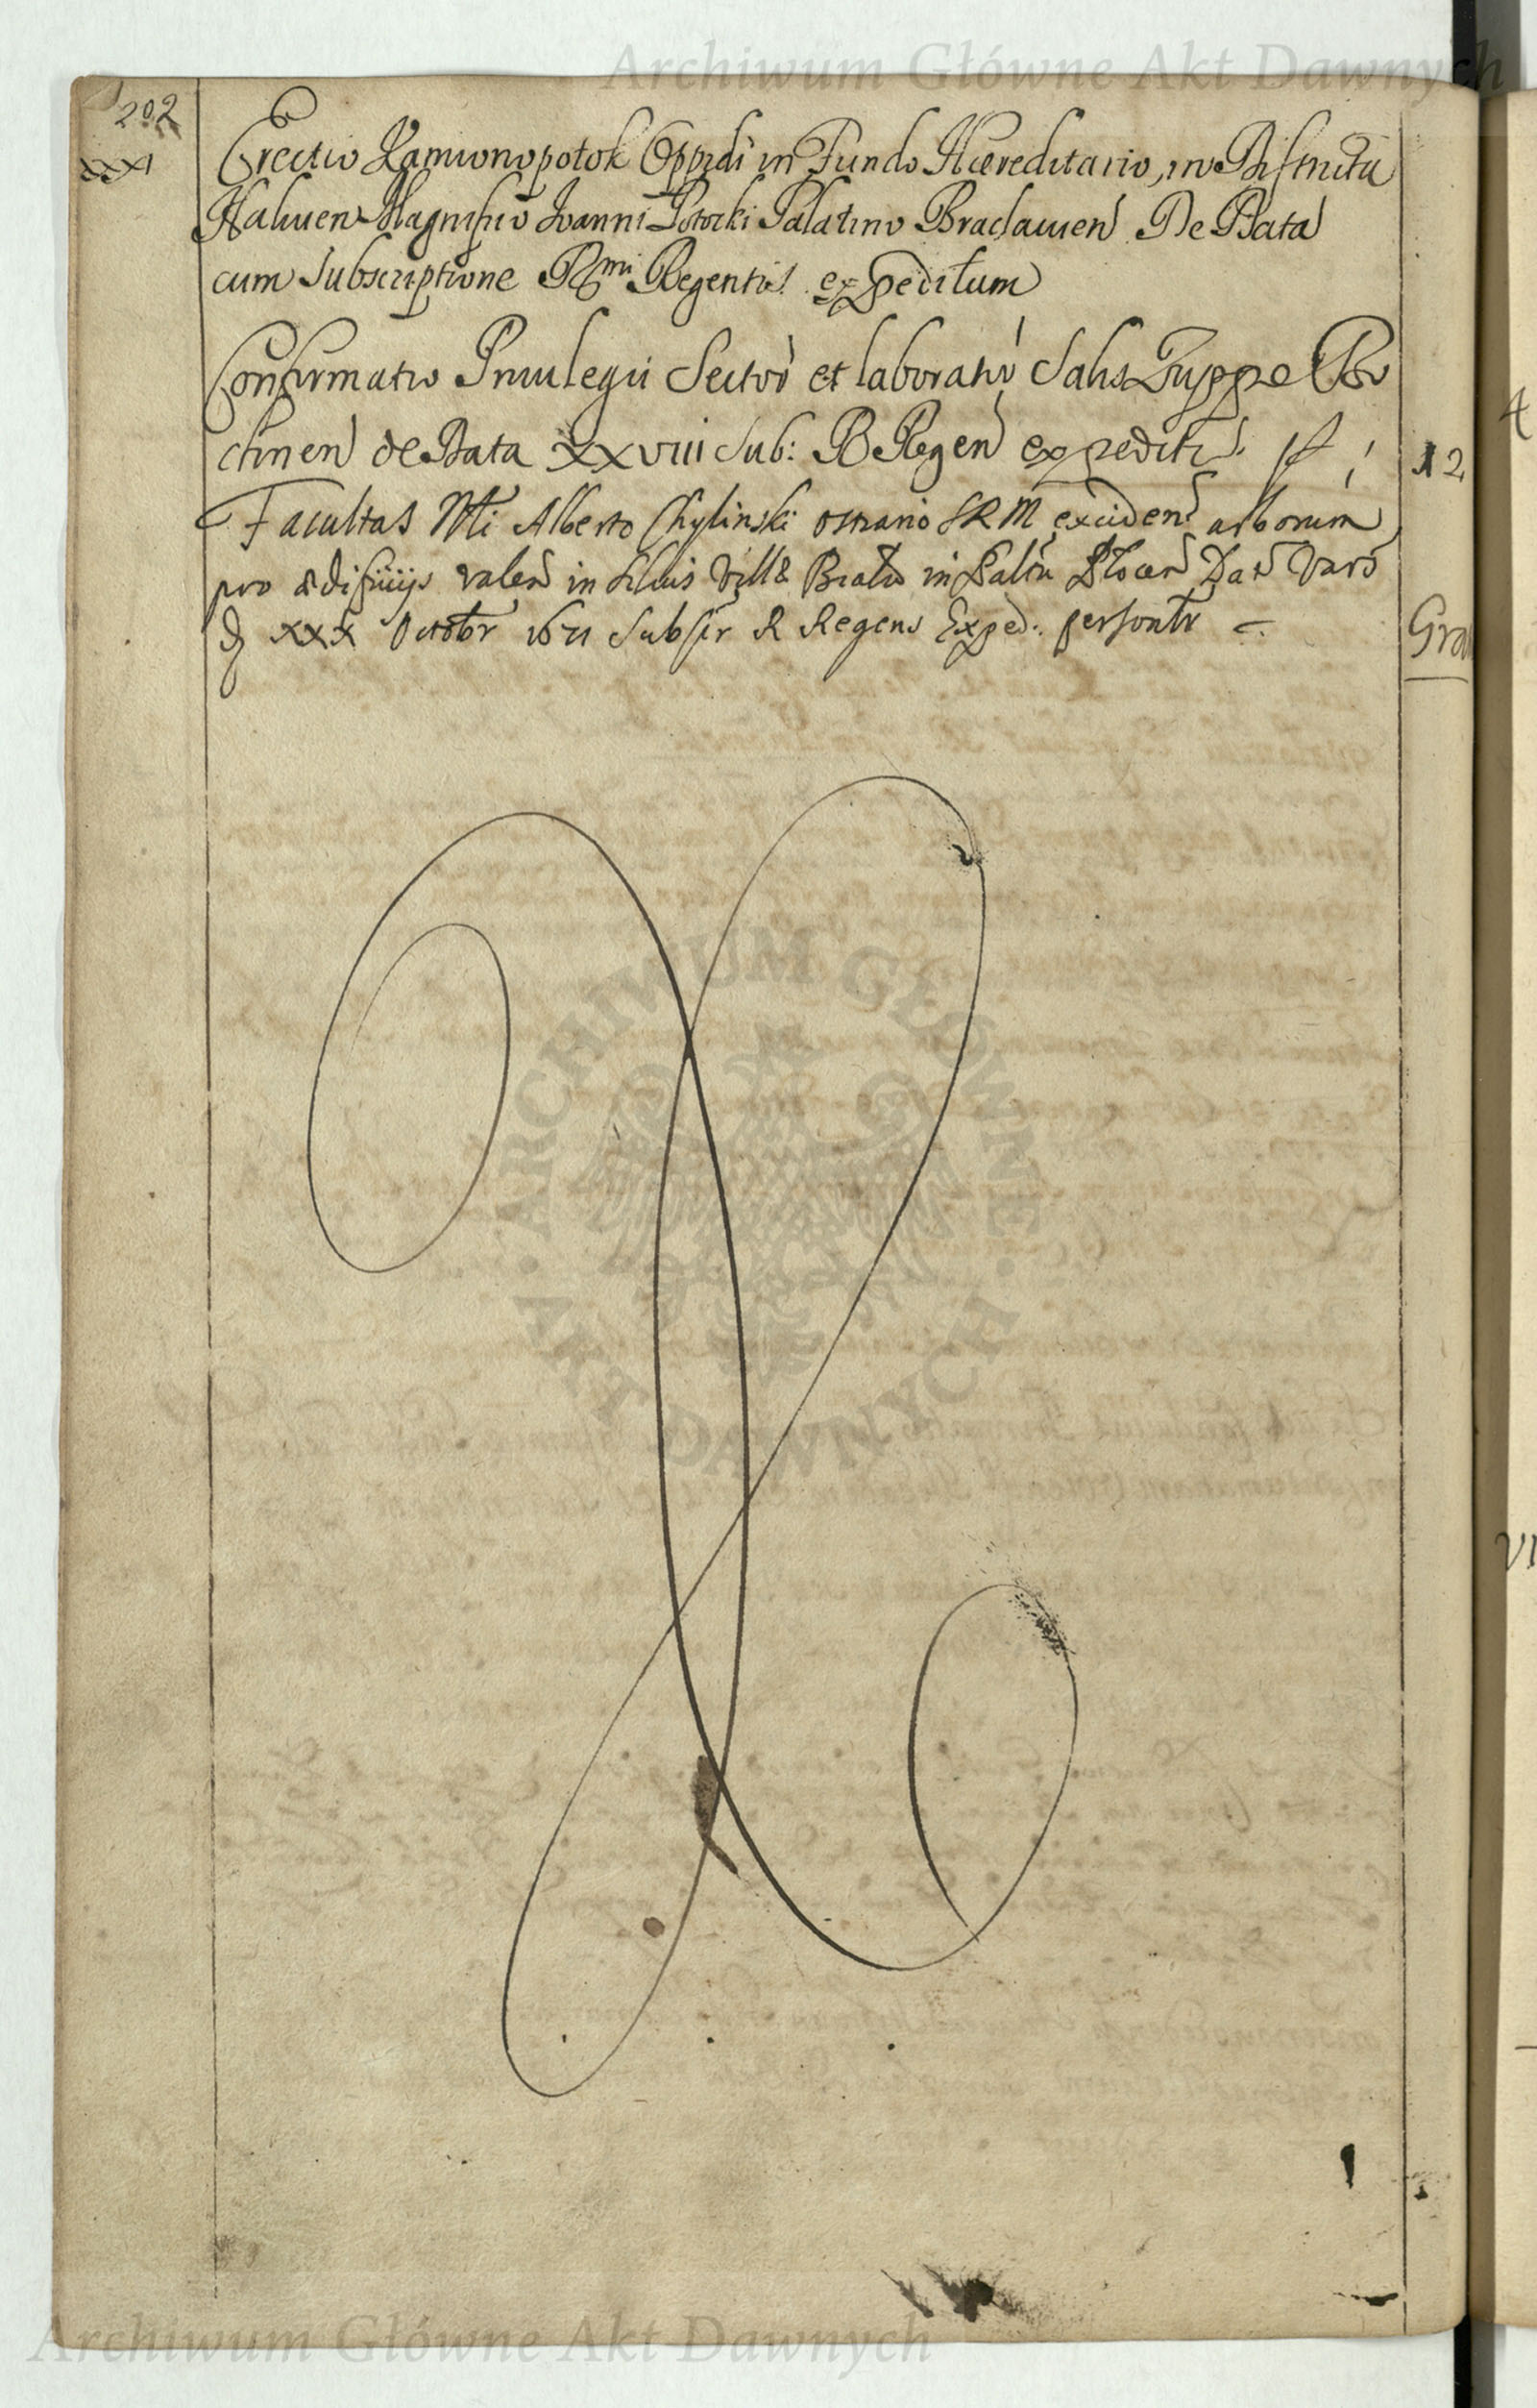 Archiwum Główne Akt Dawnych
202
XXXI
Erectio Kamionopotok Oppidi in Fundo Hæreditario, in Districtu
Halicien Magnifico Ioanni Potocki Palatino Braclauien De Data
cum Subscriptione Rmi Regentis expeditum
Confirmatio Priuilegii Sector et laborator Salis Zuppæ Bo
chnen de Data XXVIII Sub: R Regen expediti
12
Facultas Alberto Chylinski SRM exciden arborum
pro ædificiijs valen in siluis Villæ in Paltu Plocen Dat Vars
D XXX Octobr 1671 Subscr R Regens Exped:
Gra
4
VI
ARCHIWUM GŁÓWNE
AKT DAWNYCH
Archiwum Główne Akt Dawnych